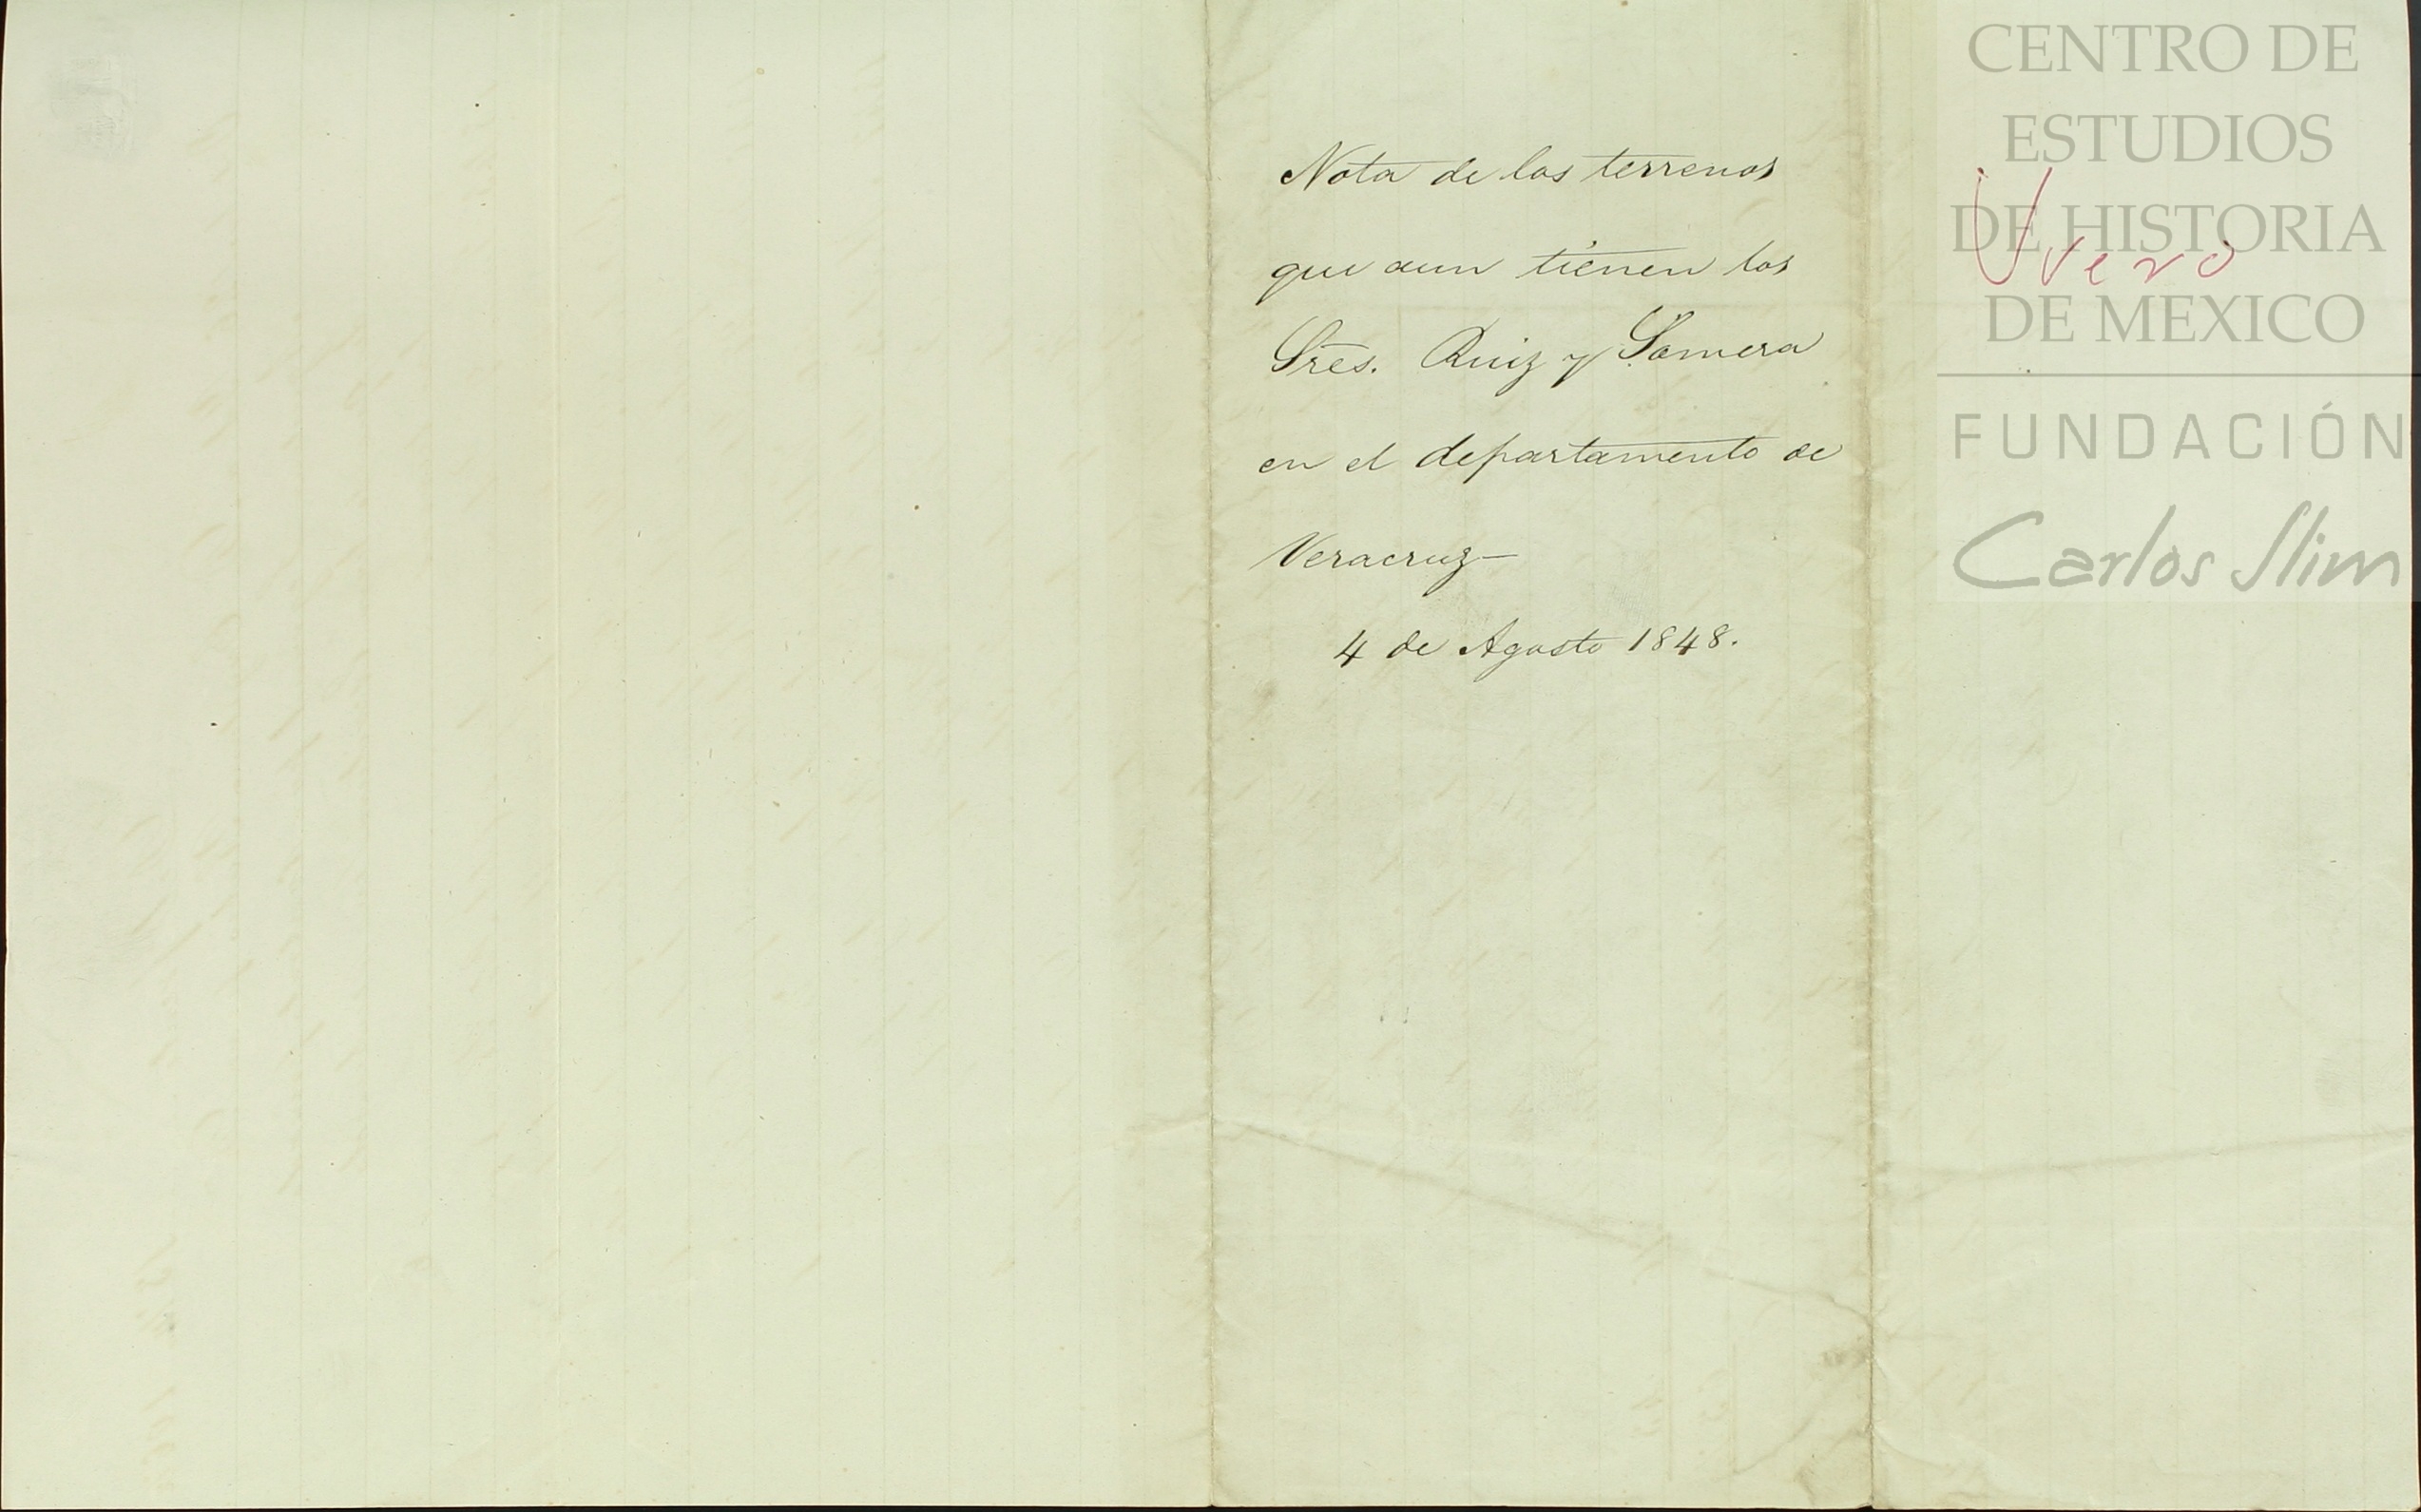 Nota de los terrenos
que aun tienen los
Sres. Ruiz y Somera
en el departamento de
Veracruz—
4 de Agosto 1848.
CENTRO DE
ESTUDIOS
DE HISTORIA
DE MEXICO
FUNDACIÓN
Carlos Slim